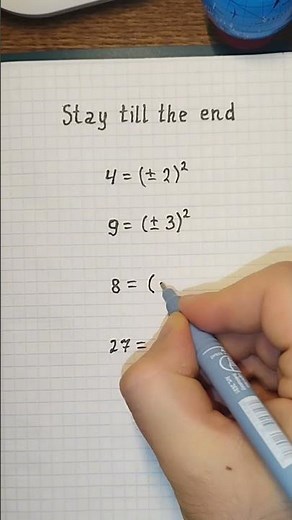 Stay till the end
4 = (± 2)²
9 = (± 3)²
8 = (
27 =